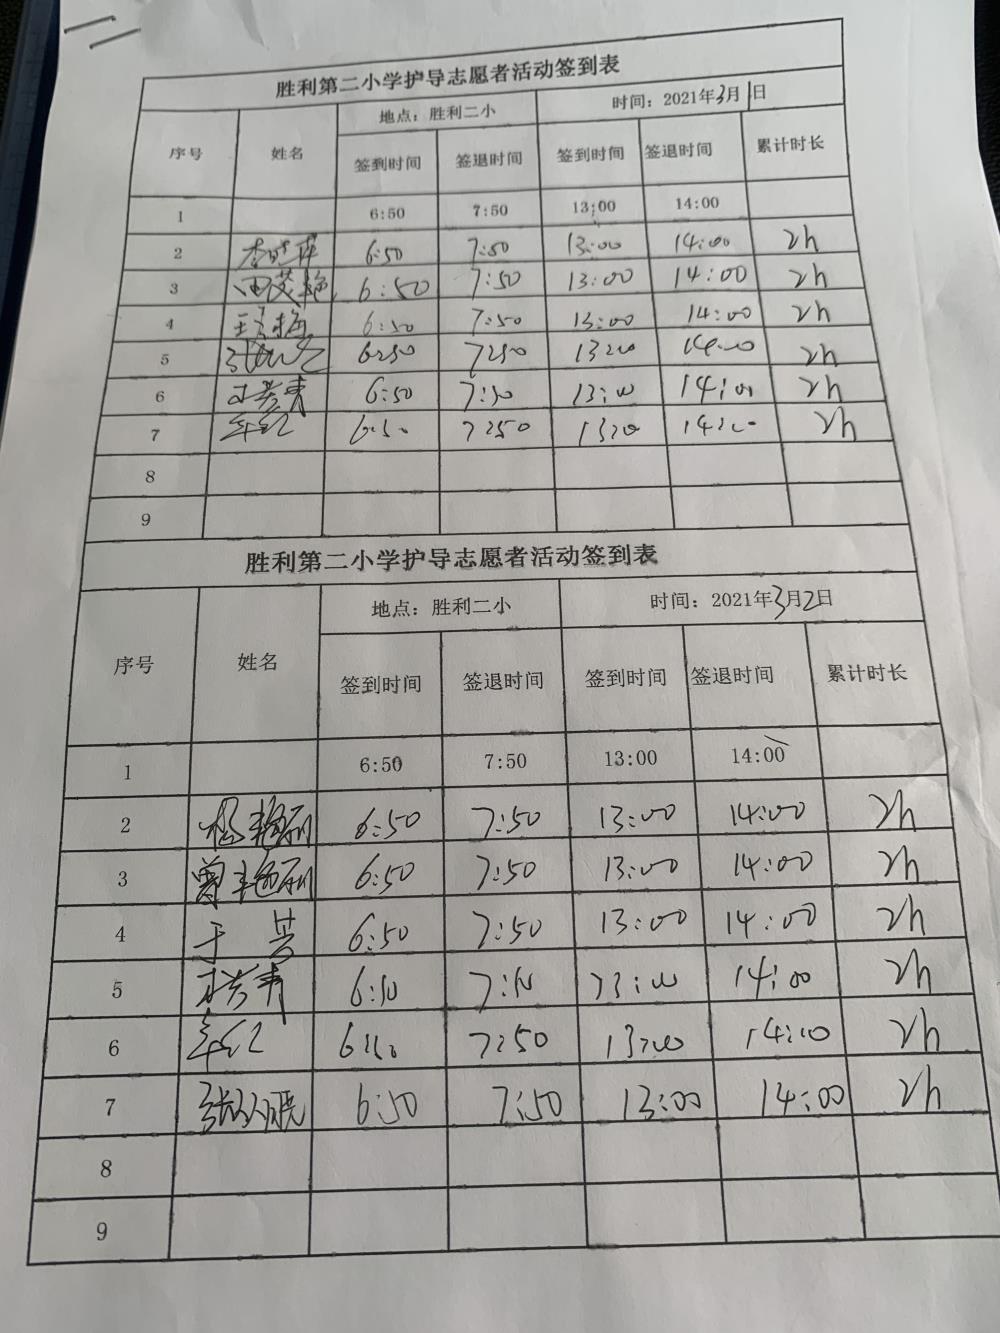 胜利第二小学护导志愿者活动签到表
序号 姓名 地点：胜利二小 时间：2021年3月1日
签到时间 签退时间 签到时间 签退时间 累计时长
1 6:50 7:50 13:00 14:00
2 6:50 7:50 13:00 14:00 2h
3 田茂艳 6:50 7:50 13:00 14:00 2h
4 6:50 7:50 13:00 14:00 2h
5 6:50 7:50 13:00 14:00 2h
6 6:50 7:50 13:00 14:00 2h
7 6:50 7:50 13:00 14:00 2h
8
9
胜利第二小学护导志愿者活动签到表
序号 姓名 地点：胜利二小 时间：2021年3月2日
签到时间 签退时间 签到时间 签退时间 累计时长
1 6:50 7:50 13:00 14:00
2 杨艳丽 6:50 7:50 13:00 14:00 2h
3 曾艳丽 6:50 7:50 13:00 14:00 2h
4 于芸 6:50 7:50 13:00 14:00 2h
5 6:50 7:50 13:00 14:00 2h
6 6:50 7:50 13:00 14:00 2h
7 6:50 7:50 13:00 14:00 2h
8
9